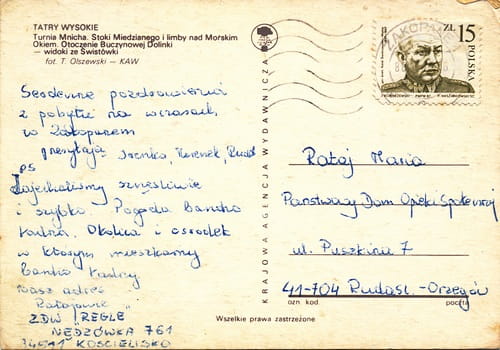 TATRY WYSOKIE
Turnia Mnicha. Stoki Miedzianego i limby nad Morskim
Okiem. Otoczenie Buczynowej Dolinki
— widoki ze Świstówki
fot. T. Olszewski — KAW
Serdeczne pozdrowienia
z pobytu na wczasach
w Zakopanem
przesyłają Irenka, Heniek,
PS
Zajechaliśmy szczęśliwie
i szybko. Pogoda bardzo
ładna. Okolica i ośrodek
w którym mieszkamy
bardzo ładny
nasz adres
Ratajowie
ZDW "REGLE"
NĘDZÓWKA 761
34511 KOŚCIELISKO
KRAJOWA AGENCJA WYDAWNICZA
ZAKOPANE
ZŁ 15
POLSKA
Rataj Maria
Państwowy Dom Opieki Społecznej
ul. Puszkina 7
41-704 Ruda Śl.-Orzegów
ozn. kod.
poczta
Wszelkie prawa zastrzeżone